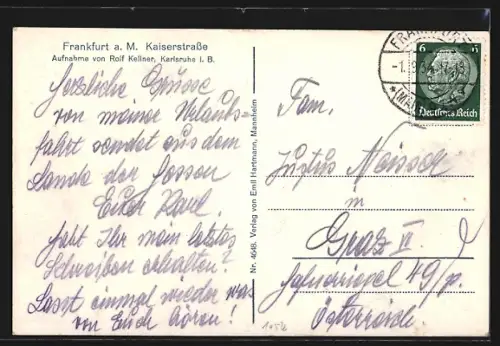 Frankfurt a. M. Kaiserstraße
Aufnahme von Rolf Kellner, Karlsruhe i. B.
Herzliche Grüsse
von meiner Urlaubs-
fahrt sendet aus dem
Lande der Hessen
Euer Karl.
Habt Ihr mein letztes
Schreiben erhalten?
Lasst einmal wieder was
von Euch hören!
Nr. 4648. Verlag von Emil Hartmann, Mannheim
FRANKFURT
(MAIN)
6
Deutsches Reich
Fam.
Justus
in
Graz VI
49/p.
Österreich.